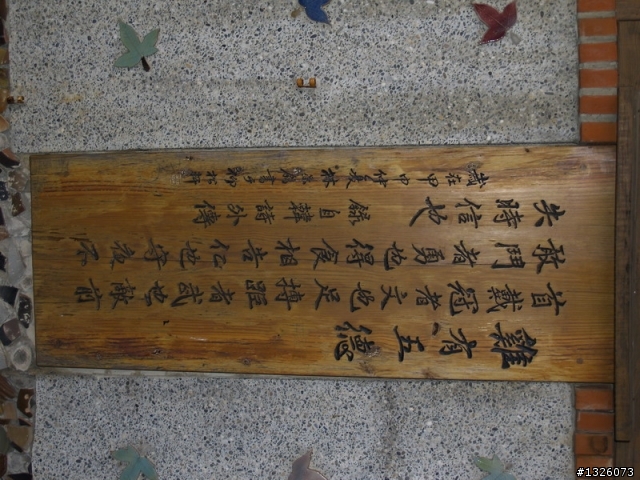 雞有五德
首戴冠者文也足搏距者武也敵前
敢鬥者勇也得食相告仁也守夜不
失時信也 錄自韓詩外傳
歲在甲申仲夏林
#1326073